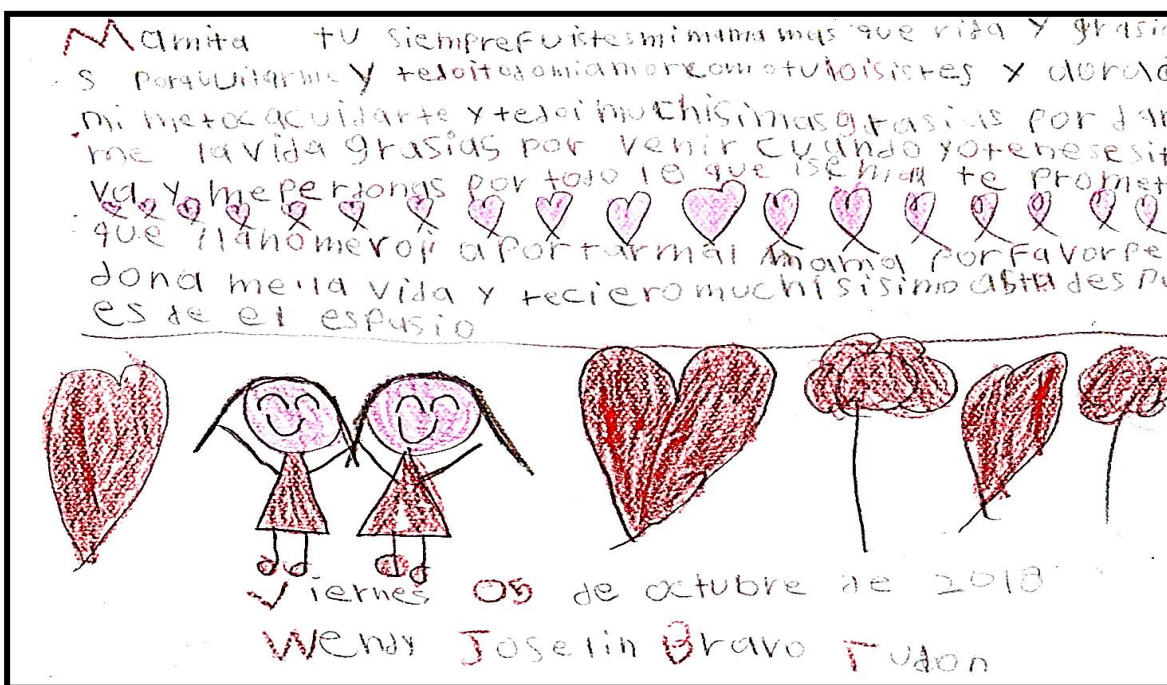 Mamita tu siempre fuistes mi mama mas que rida y grasia
s por cuidarme y te doi todo mi amor como tu lo isistes y aora a
mi me toca cuidarte y te doi muchisimas grasias por dar
me la vida grasias por venir cuando yo te nesesit
va y me perdongs por todo lo que ise mal te promet
que llano me voi a portar mal mama por favor pe
dona me la vida y te ciero muchisisimo asta des pu
es de el espasio
Viernes 05 de octubre de 2018
Wendy Joselin Bravo Tudon